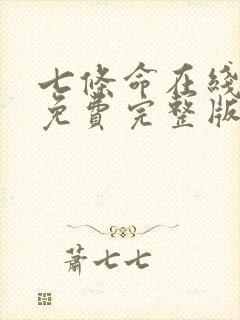 七條命在綫
免費完整版
蕭七七